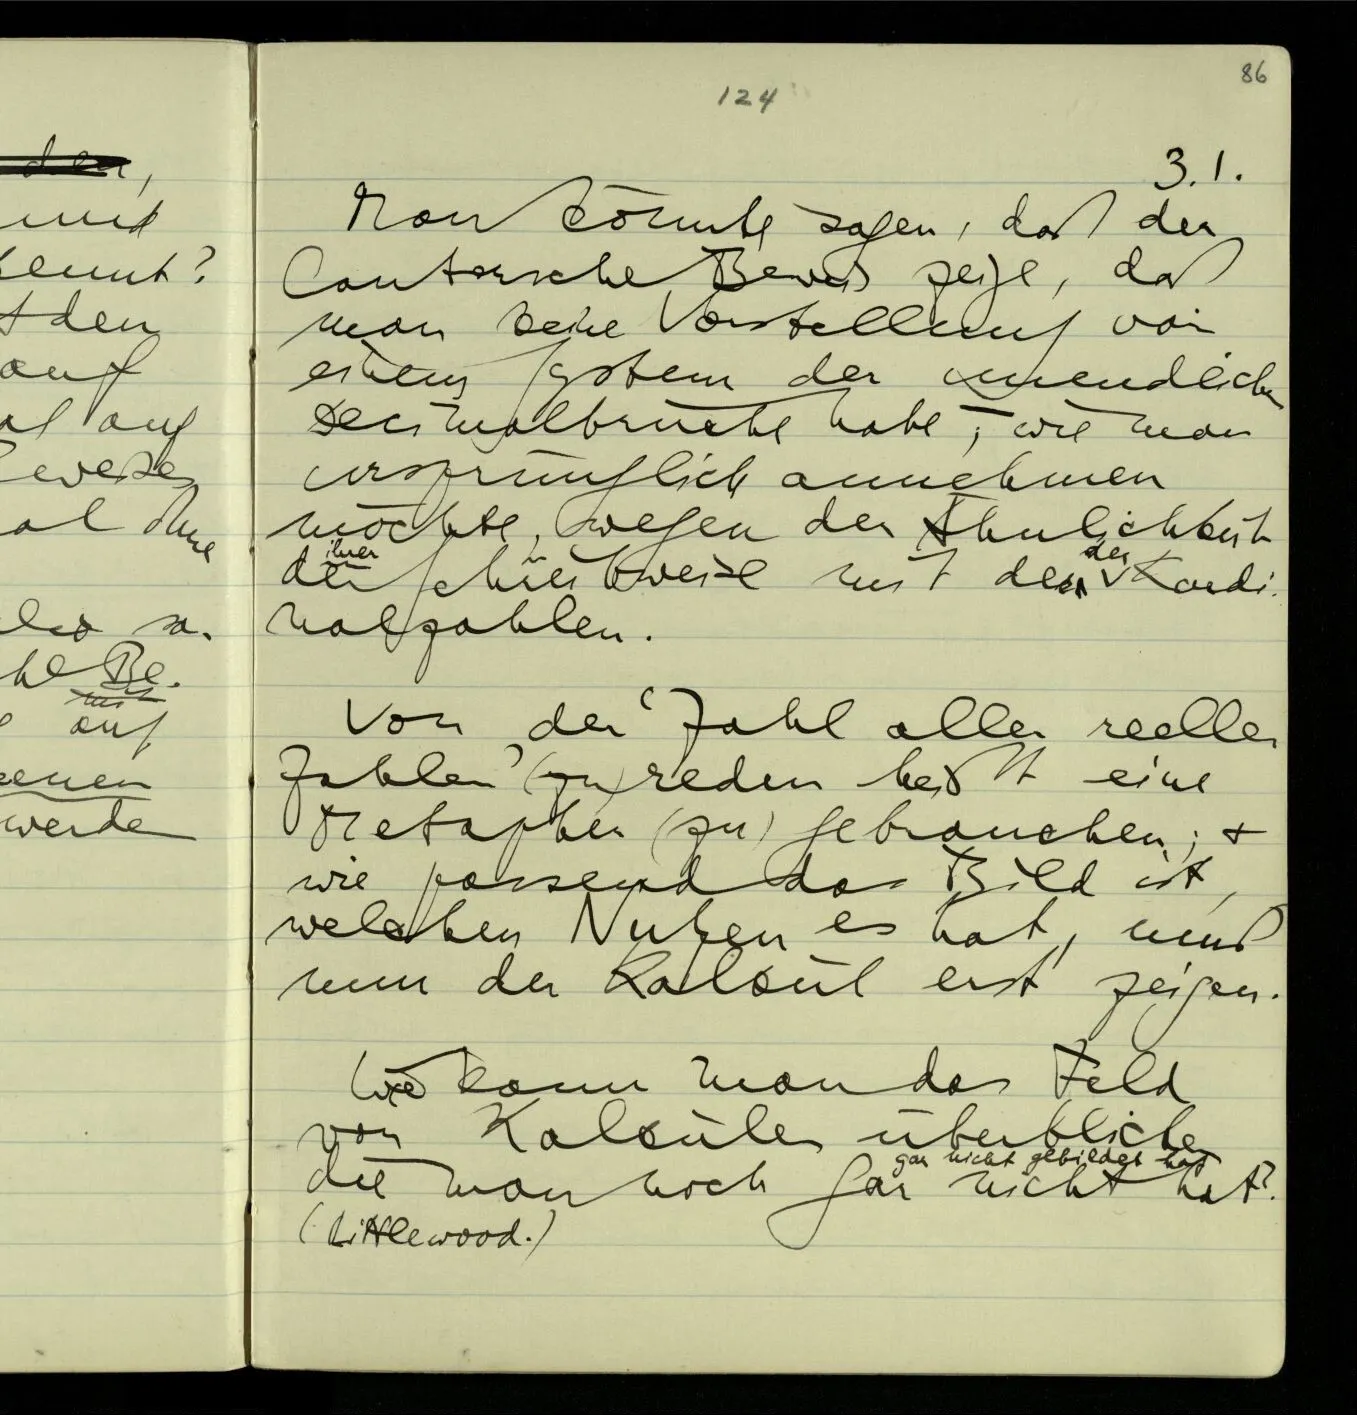 den,
und
kennt?
den
auf
auf
weises
ohne
so-
Be-
auf
werde
86
124
3.1.
Man könnte sagen, daß der
Cantorsche Beweis zeige, daß
man keine Vorstellung von
einem System der unendlichen
Decimalbrüche habe, wie man
ursprünglich annehmen
möchte, wegen der Ähnlichkeit
ihrer der
der Schreibweise mit den Kardi-
nalzahlen.
Von der ‘Zahl aller reellen
Zahlen’ (zu) reden heißt eine
Metapher (zu) gebrauchen; &
wie passend das Bild ist,
welchen Nutzen es hat, muß
nun der Kalkül erst zeigen.
Wie kann man das Feld
von Kalkülen überblicken
gar nicht gebildet hat
die man noch gar nicht hat?
(Littlewood.)